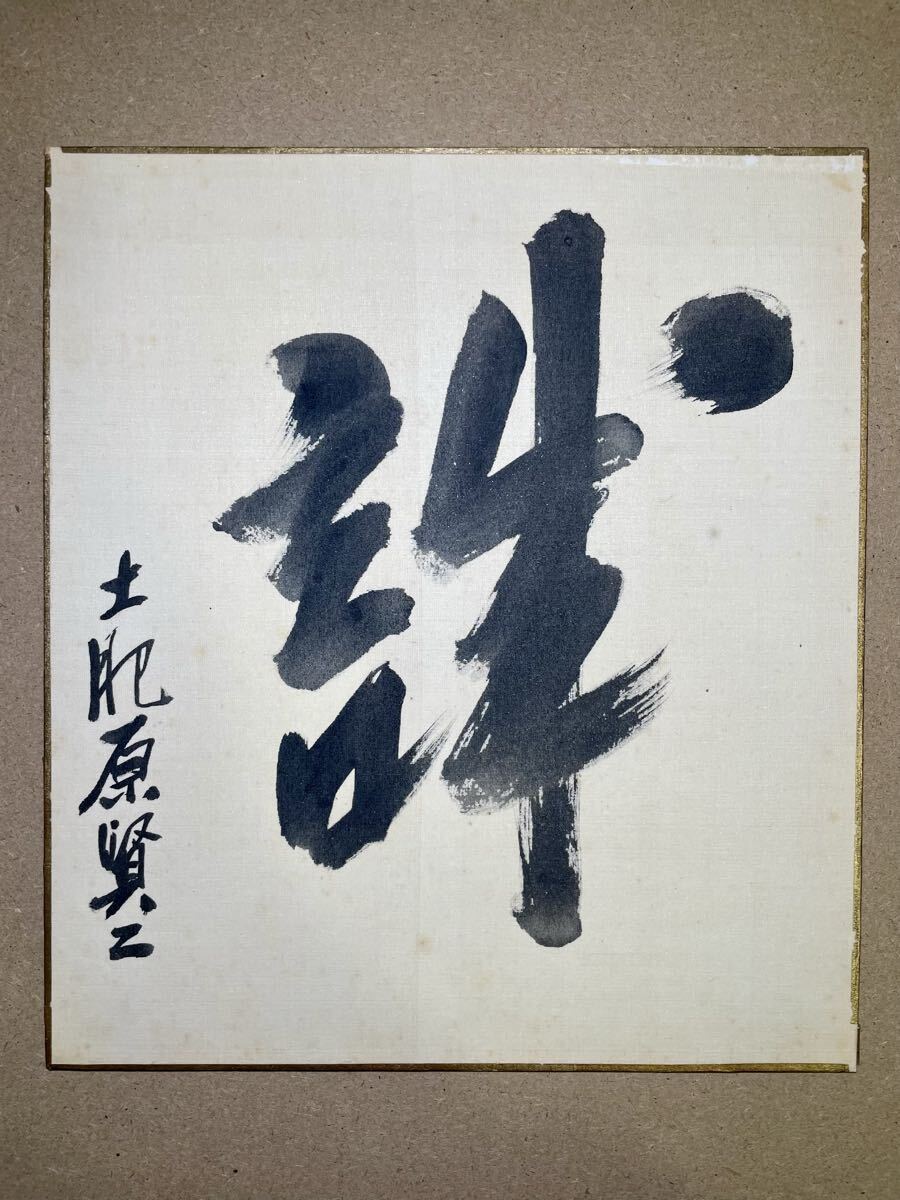 誠
土肥原賢二